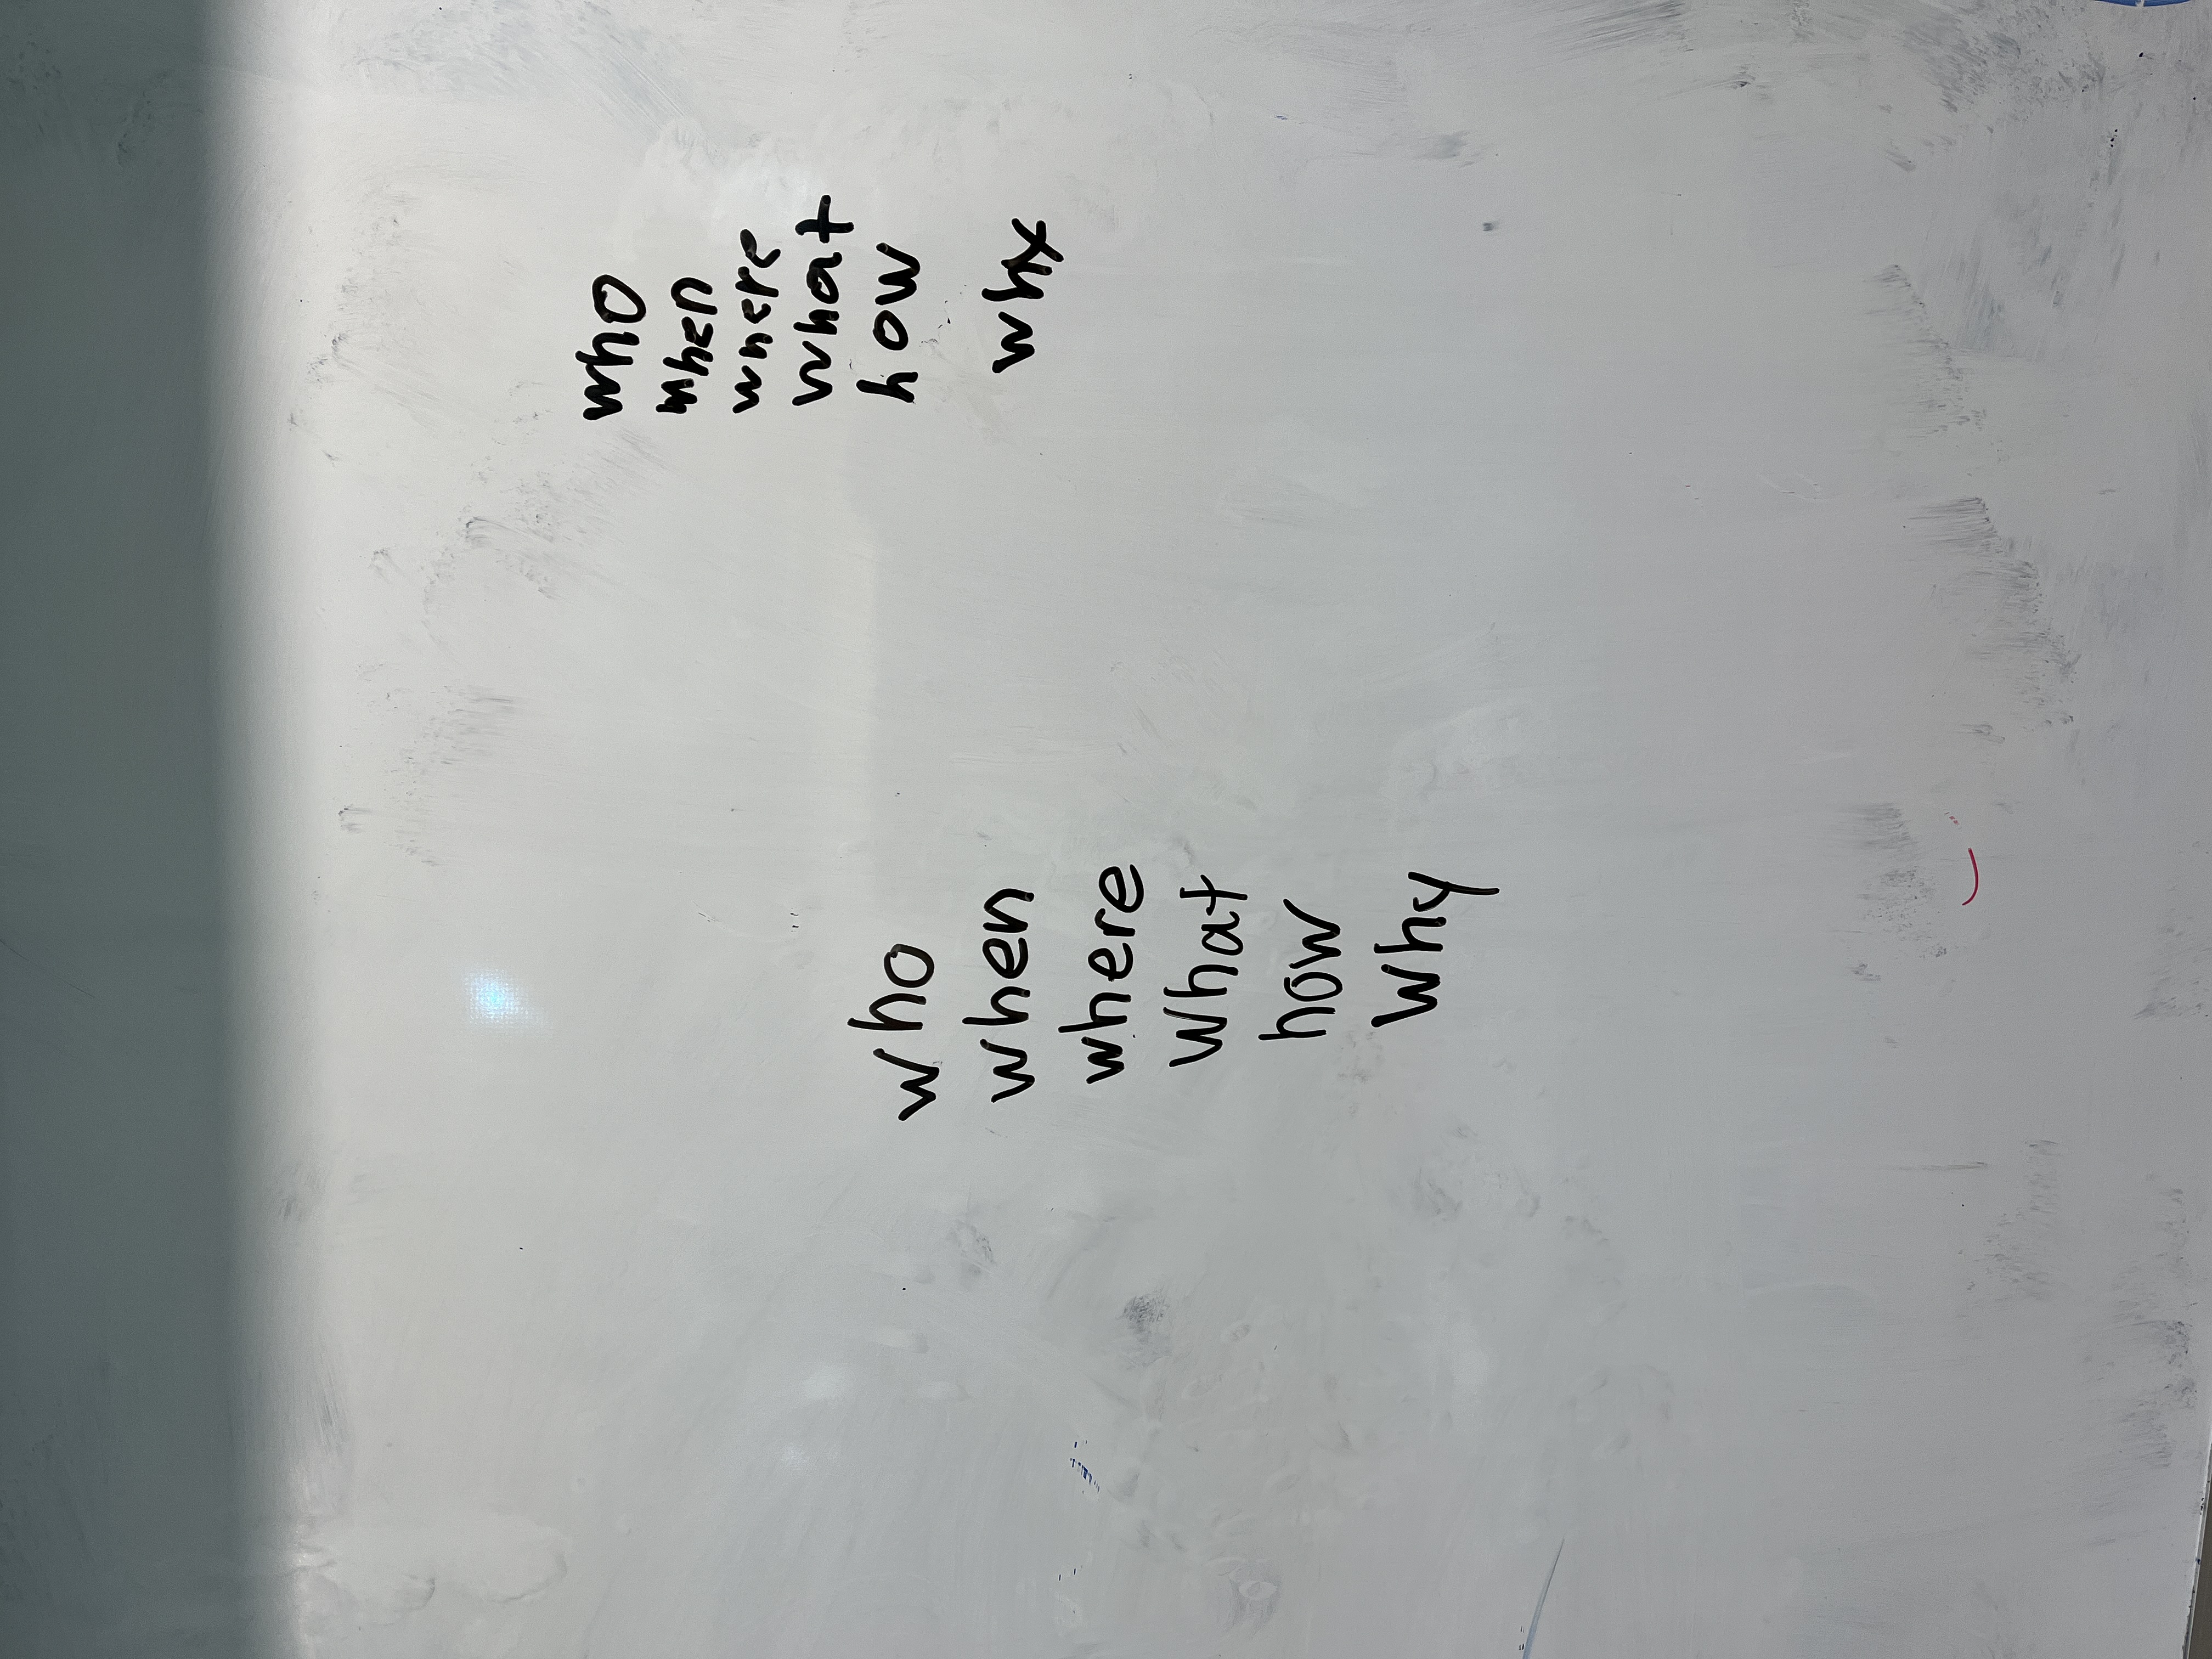 who
when
where
what
how
why
who
when
where
what
how
why